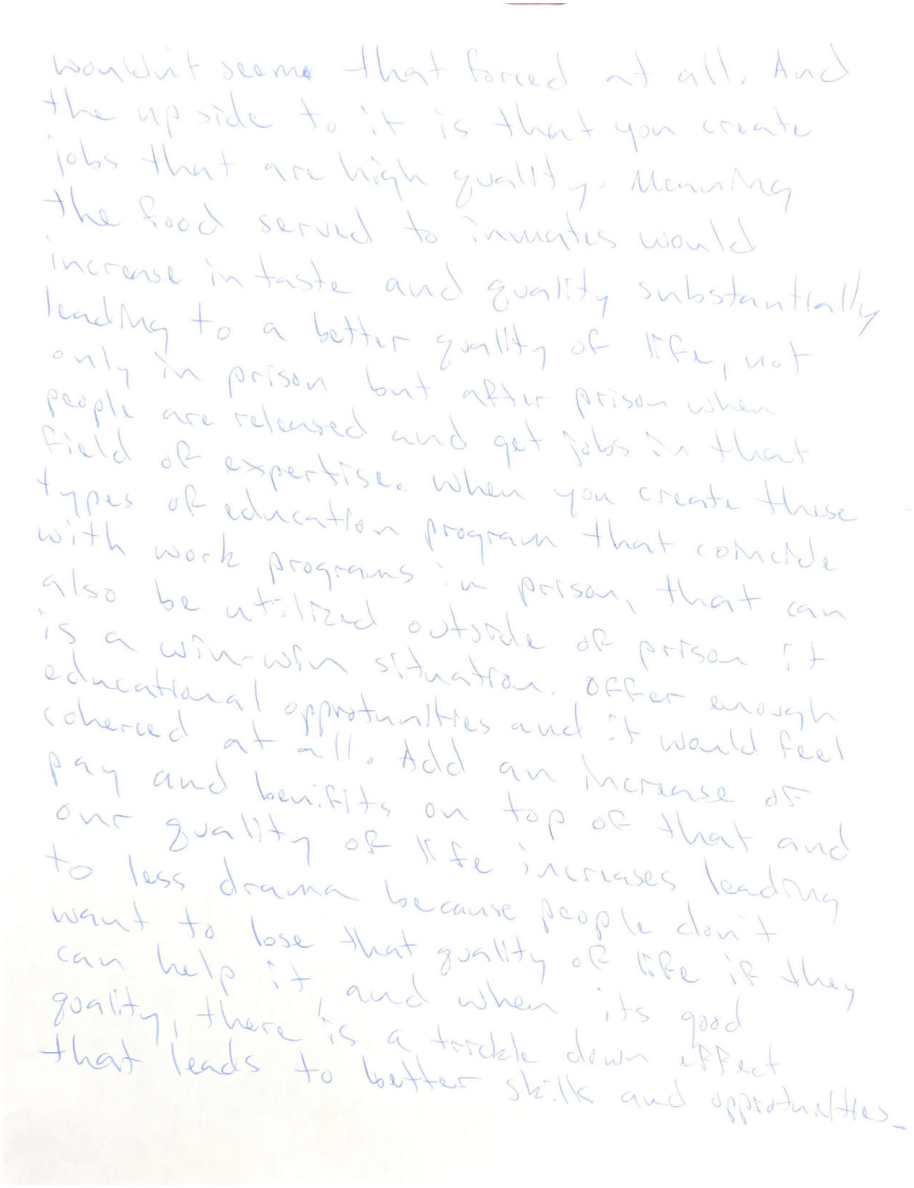 wouldn't seem that forced at all. And
the upside to it is that you create
jobs that are high quality. Meaning
the food served to inmates would
increase in taste and quality substantially
leading to a better quality of life, not
only in prison but after prison when
people are released and get jobs in that
field of expertise. When you create these
types of education program that coincide
with work programs in prison, that can
also be utilized outside of prison it
is a win-win situation. Offer enough
educational opprotunities and it would feel
coherced at all. Add an increase of
pay and benifits on top of that and
our quality of life increases leading
to less drama because people don't
want to lose that quality of life if they
can help it, and when its good
quality, there is a trickle down effect
that leads to better skills and opprotunities_